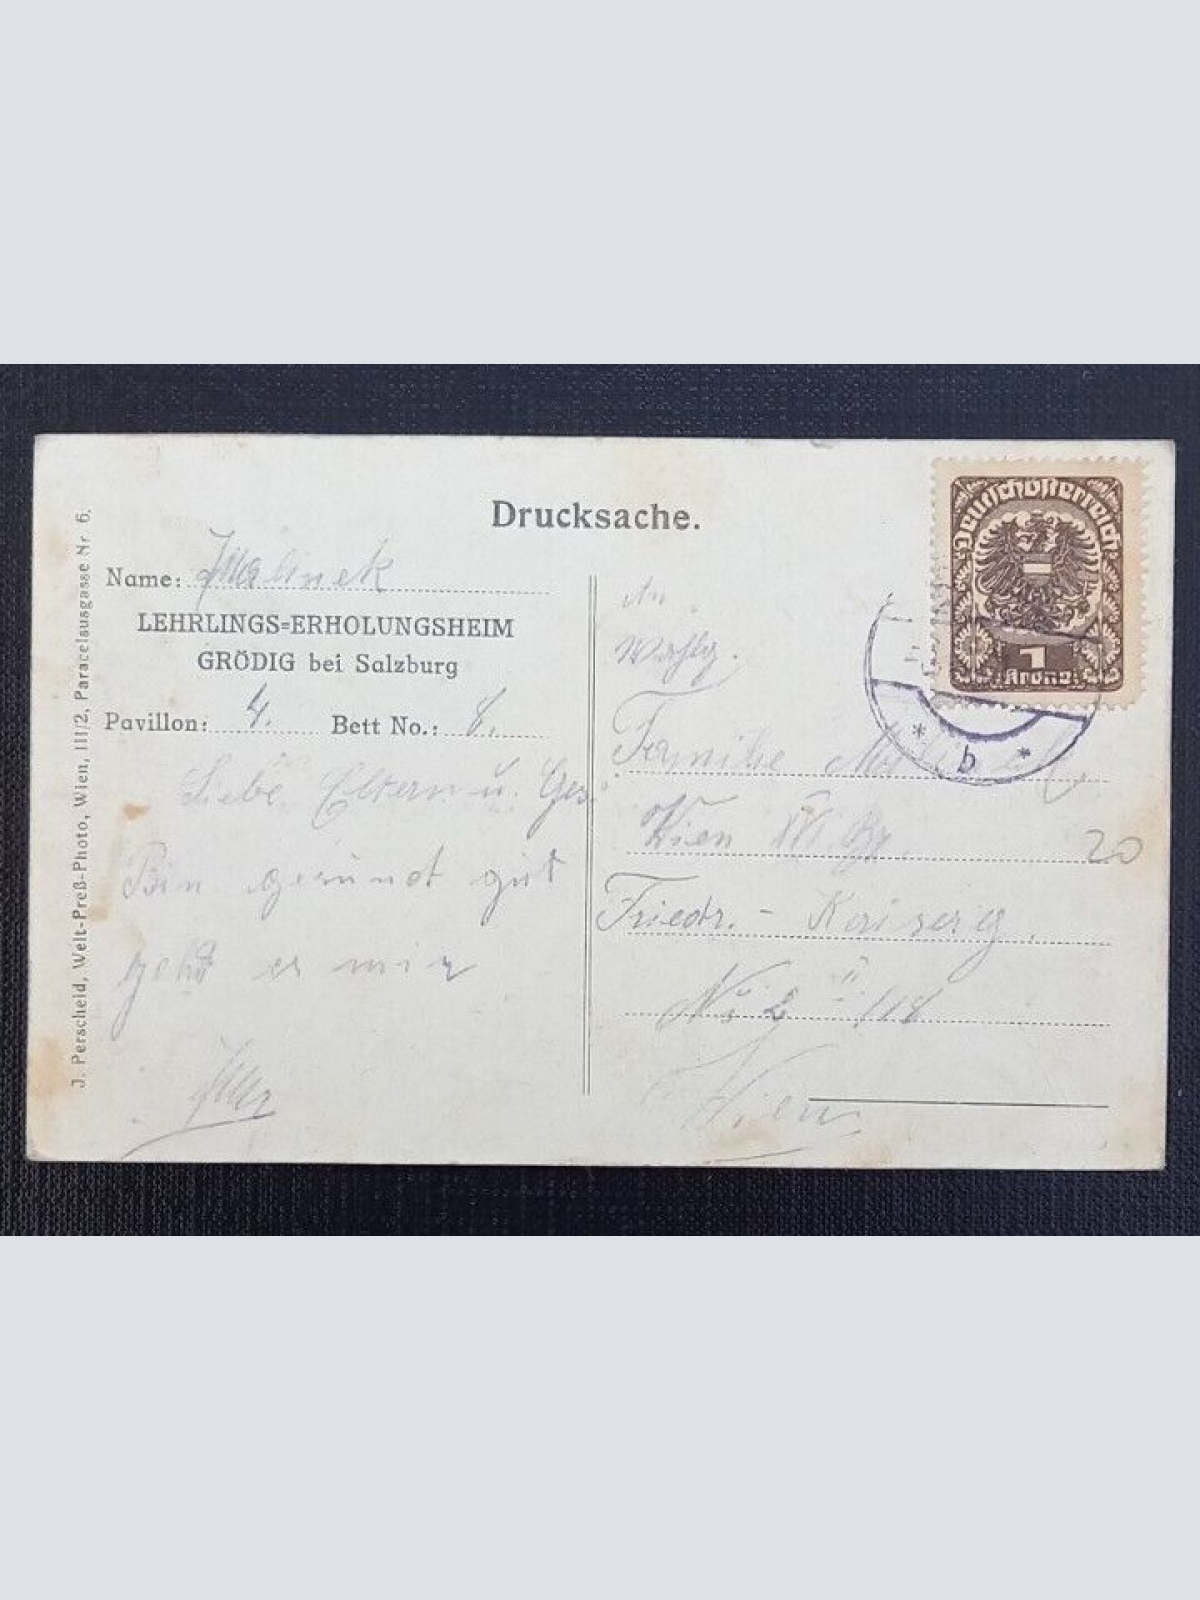 Drucksache.
Name: Malinek
LEHRLINGS=ERHOLUNGSHEIM
GRÖDIG bei Salzburg
Pavillon: 4. Bett No.: 8.
Liebe Eltern u. Ges.
Bin gesund gut
geht es mir
J. Perscheid, Welt-Preß-Photo, Wien, III/2, Paracelsusgasse Nr. 6.
An
Familie
Wien XVI
Friedr. - Kaiserg.
Wien
20
Deutschösterreich
1
Krone
* b *